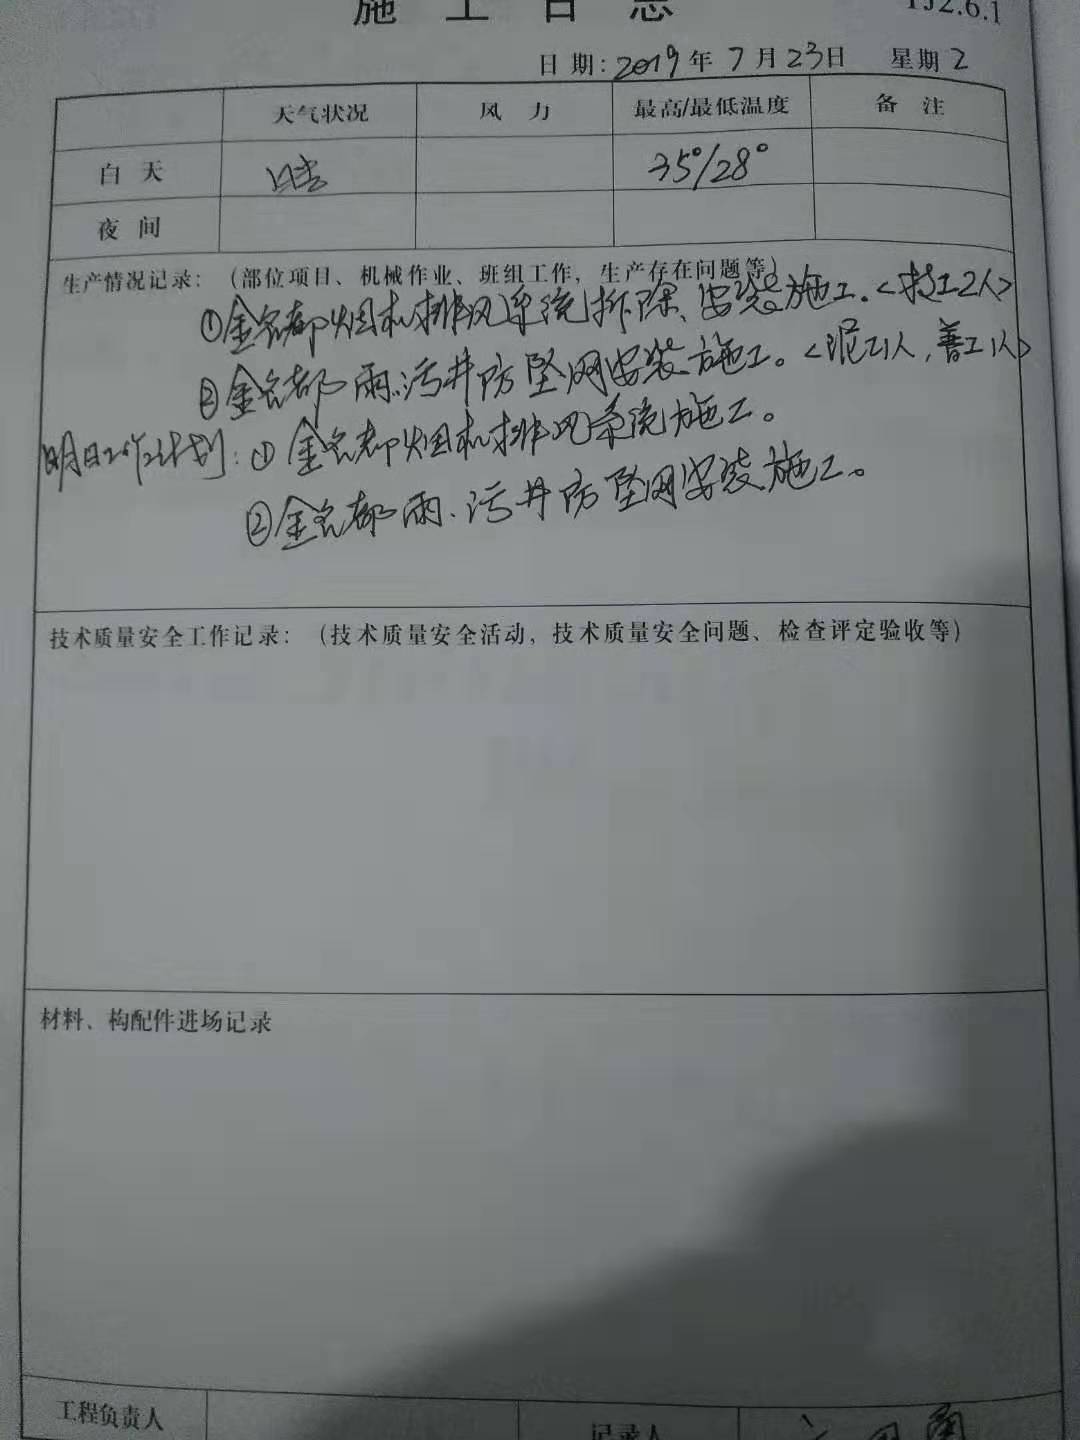 施 工 日 志
TJ2.6.1
日 期: 2019 年 7 月 23 日 星期 2
天气状况 风 力 最高/最低温度 备 注
白 天 晴 35°/28°
夜 间
生产情况记录: (部位项目、机械作业、班组工作, 生产存在问题等)
①金名都烟机排风系统拆除、安装施工。<技工2人>
②金名都雨、污井防坠网安装施工。<泥工1人, 普工1人>
明日工作计划: ①金名都烟机排风系统施工。
②金名都雨、污井防坠网安装施工。
技术质量安全工作记录: (技术质量安全活动, 技术质量安全问题、检查评定验收等)
材料、构配件进场记录
工程负责人 记录人